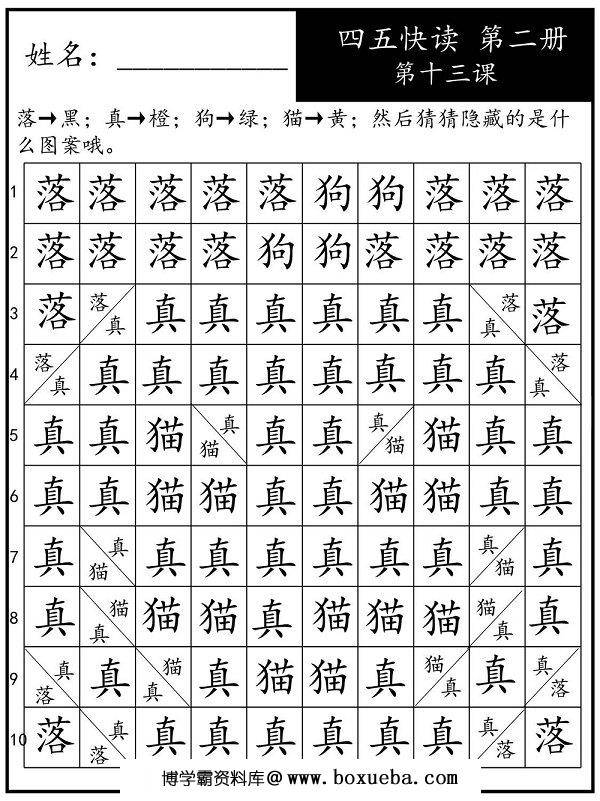 姓名：___________
四五快读 第二册
第十三课
落→黑；真→橙；狗→绿；猫→黄；然后猜猜隐藏的是什
么图案哦。
1 落 落 落 落 落 狗 狗 落 落 落
2 落 落 落 落 狗 狗 落 落 落 落
3 落 落 真 真 真 真 真 真 真 落 真 落
4 落 真 真 真 真 真 真 真 真 真 落 真
5 真 真 猫 真 猫 真 真 真 猫 猫 真 真
6 真 真 猫 猫 真 真 猫 猫 真 真
7 真 真 猫 真 真 真 真 真 真 真 猫 真
8 真 猫 真 猫 猫 真 猫 猫 猫 猫 真 真
9 真 落 真 猫 真 真 猫 猫 真 猫 真 真 真 落
10 落 真 落 真 真 真 真 真 真 真 落 落
博学霸资料库@ www.boxueba.com